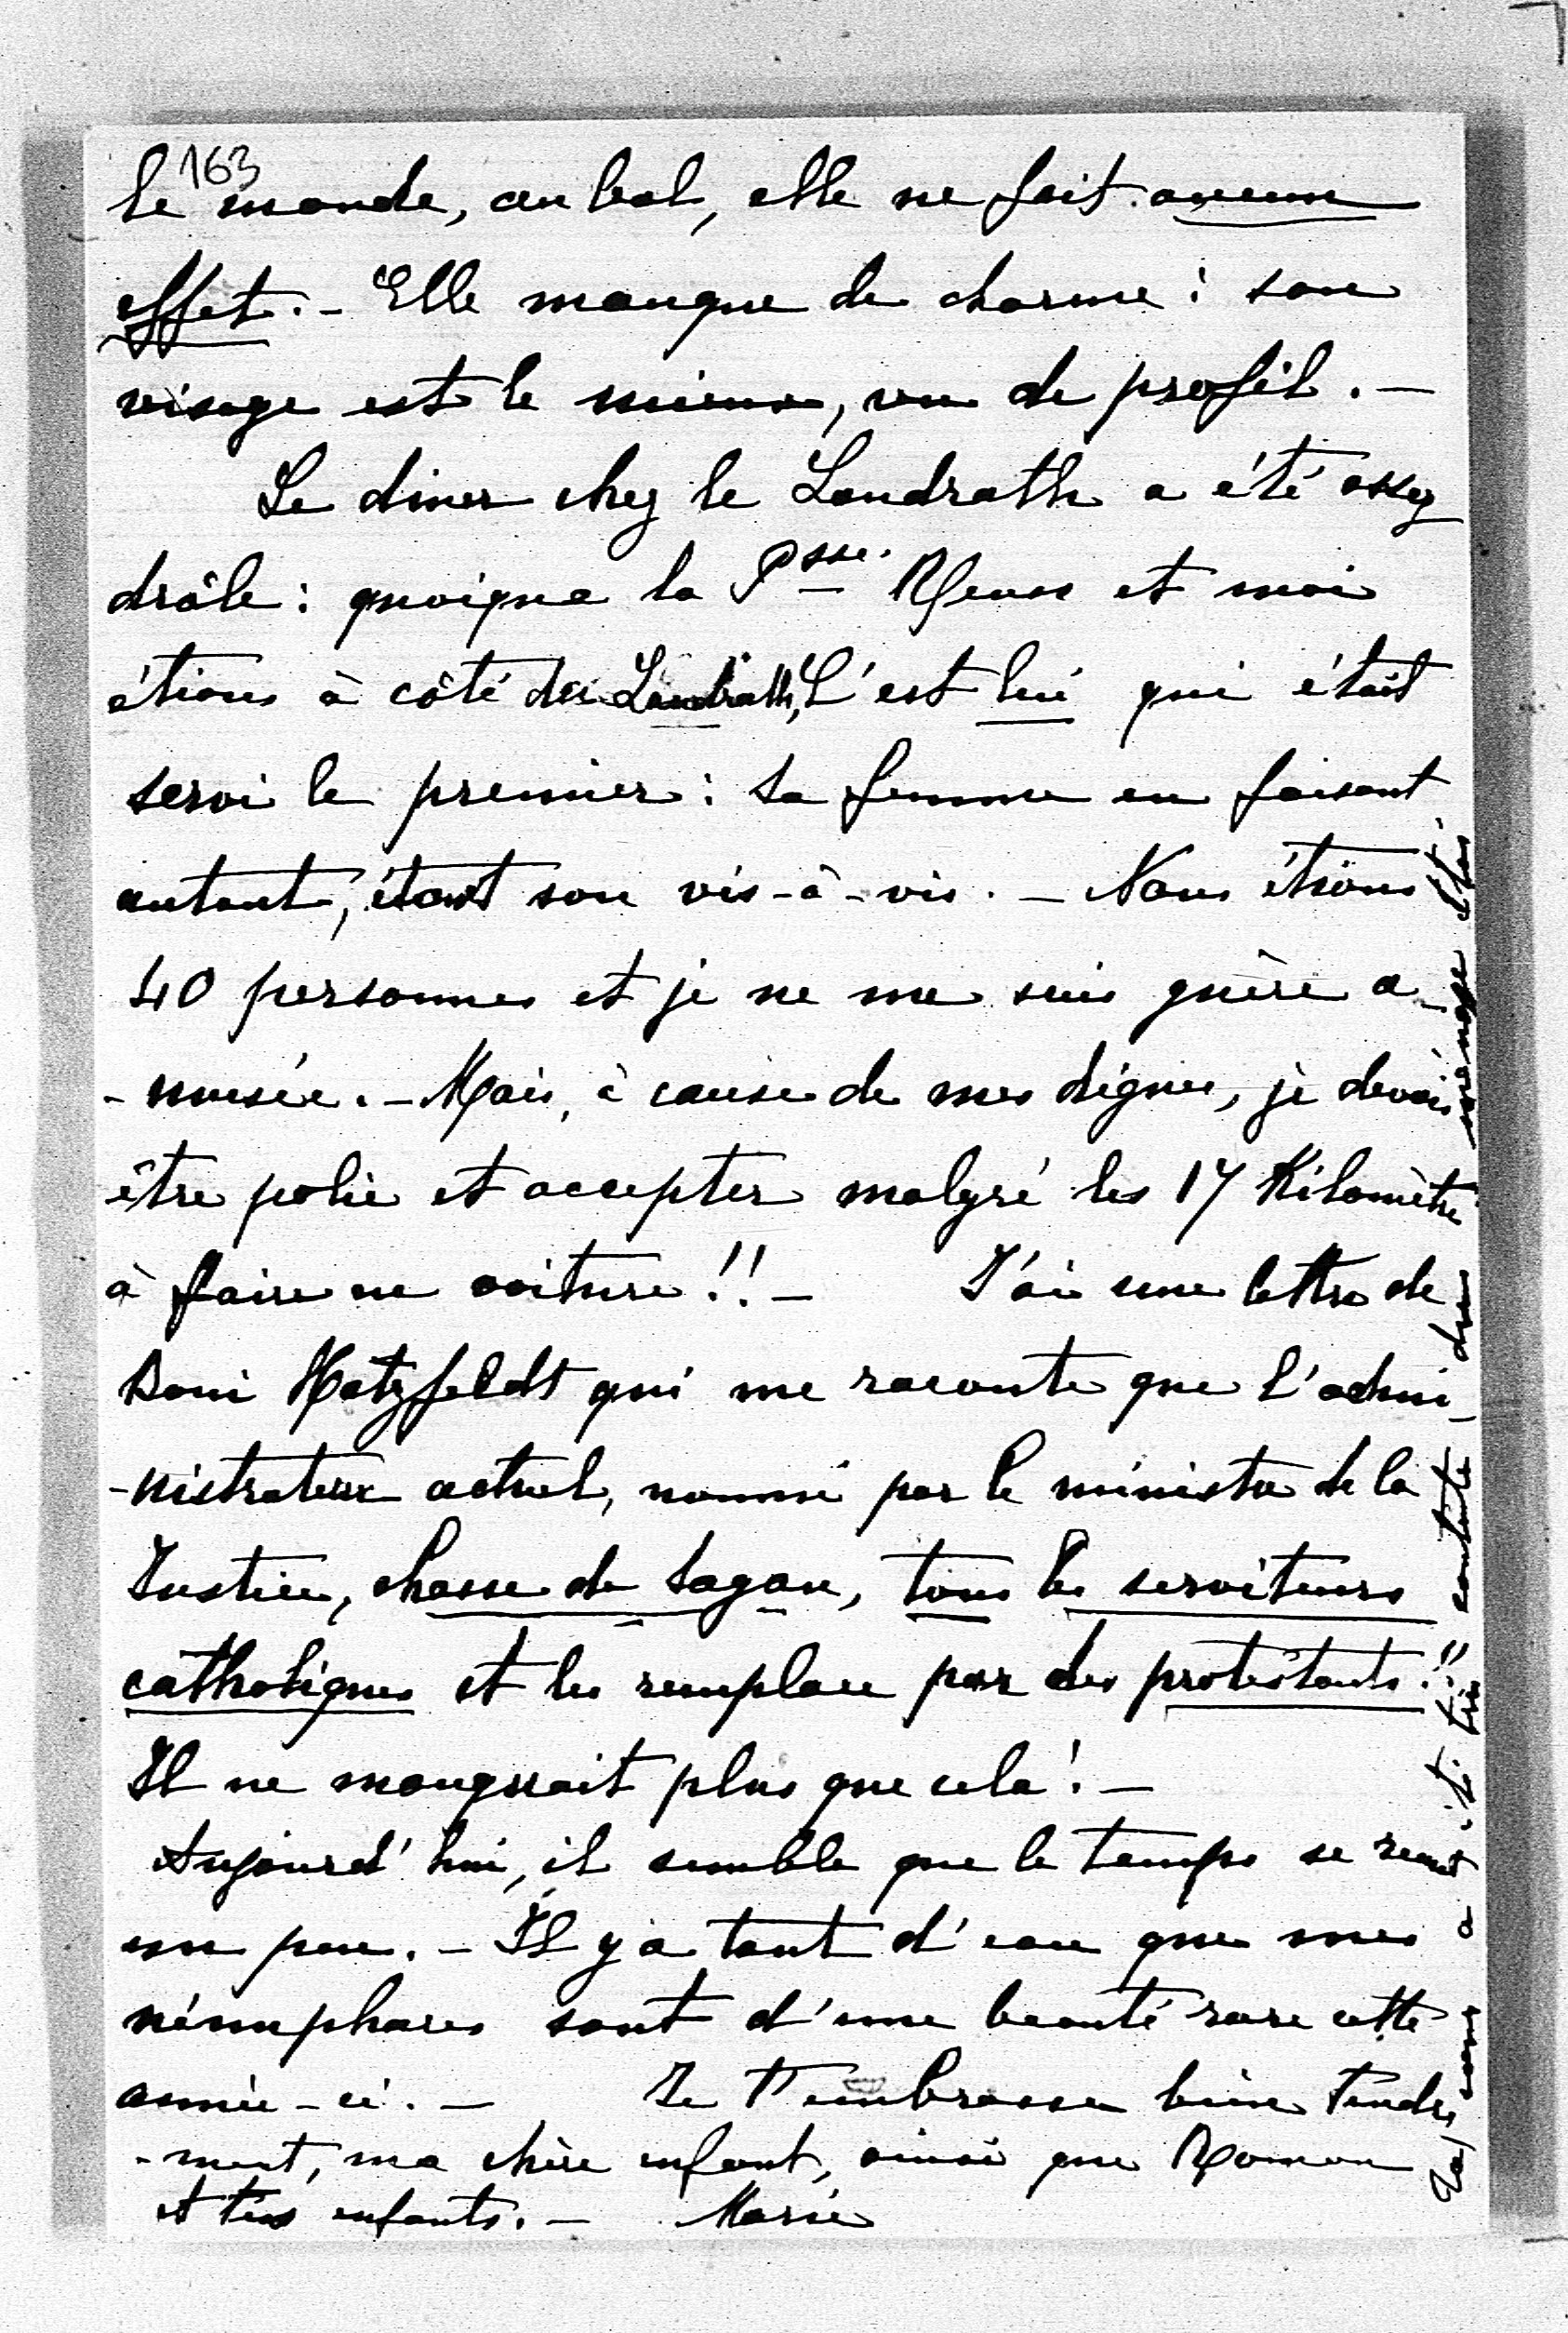 163
le monde, au bal, elle ne fait aucun
effet. - Elle manque de charme : son
visage est le mieux, vu de profil. -
Le diner chez le Landrath a été assez
drôle : quoique la Psse. Reuss et moi
étions à côté du Landrath, C'est lui qui était
servi le premier : sa femme en faisant
autant, étant son vis-à-vis. - Nous étions
40 personnes et je ne me suis guère a-
-musée. - Mais, à cause de mes digues, je devais
être polie et accepter malgré les 17 Kilomètre
à faire en voiture !! - J'ai une lettre de
Boni Hatzfeldt qui me raconte que l'admi-
-nistrateur actuel, nommé par le ministre de la
Justice, chasse de Sagan, tous les serviteurs
catholiques et les remplace par des protestants !!
Il ne manquait plus que cela ! -
Aujourd'hui, il semble que le temps se remet
un peu. - Il y a tant d'eau que mes
nénuphares sont d'une beauté rare cette
année-ci. - Je t'embrasse bien tendre
-ment, ma chère enfant, ainsi que Roman
et tes enfants. - Marie
a été très contente du